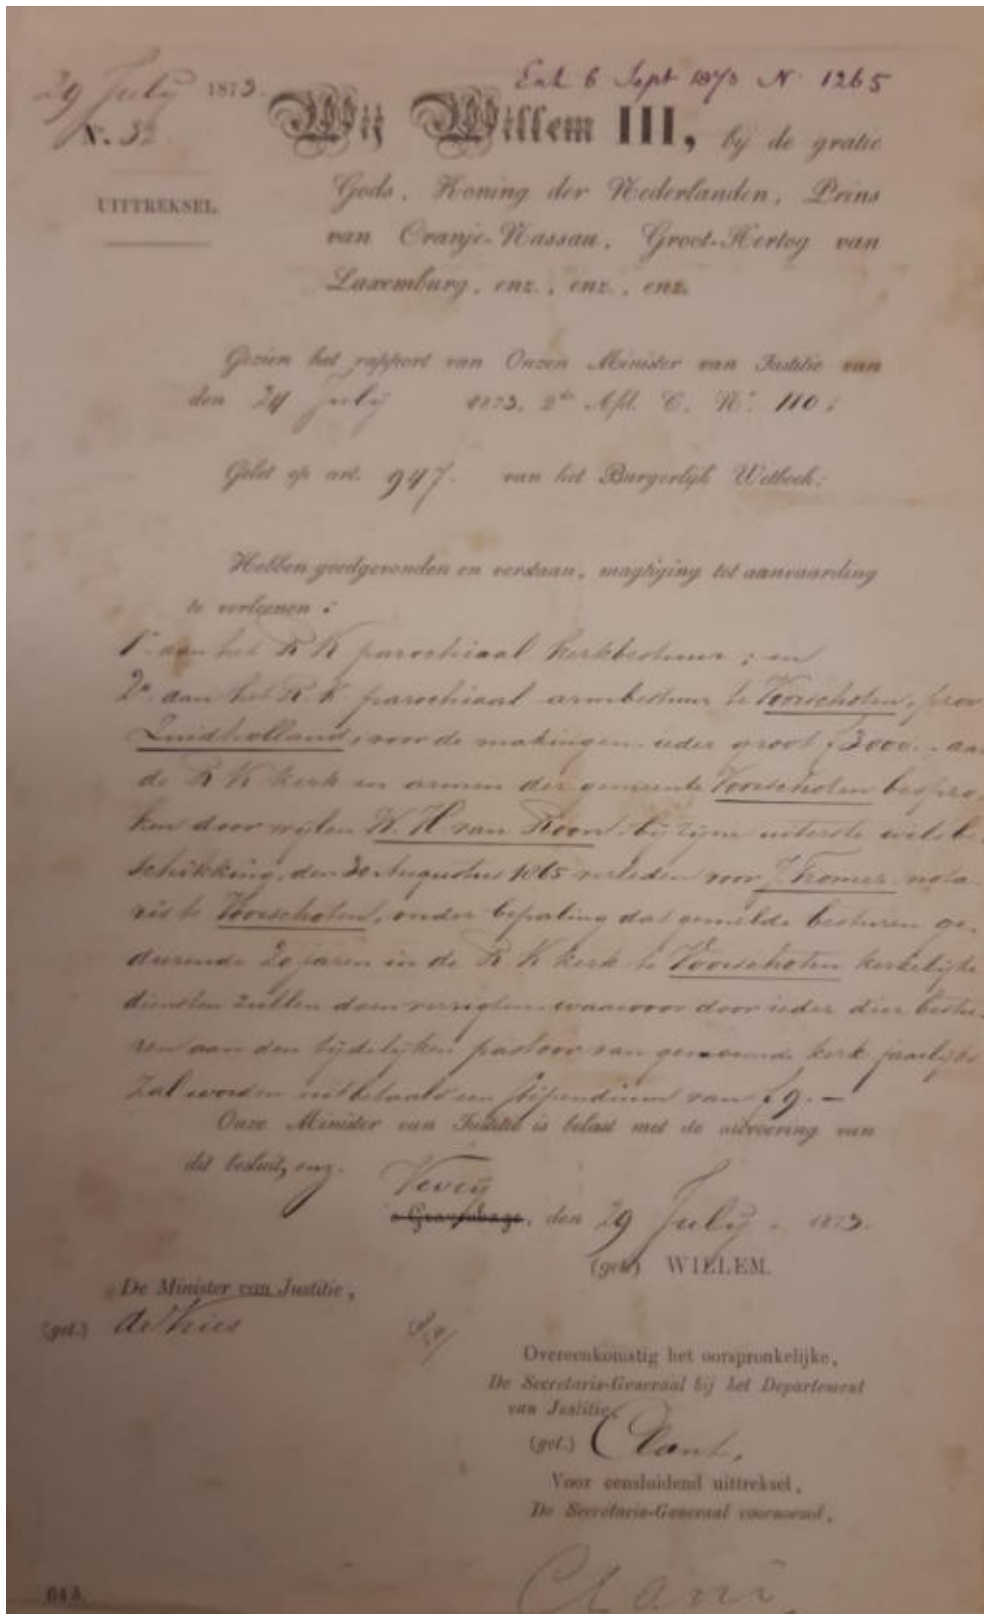 29 July 1873.
Exh 6 Sept 1873 N. 1265
N. 32
Wij Willem III, bij de gratie
UITTREKSEL.
Gods, Koning der Nederlanden, Prins
van Oranje-Nassau, Groot-Hertog van
Luxemburg, enz., enz., enz.
Gezien het rapport van Onzen Minister van Justitie van
den 24 July 1873, 2de Afd. C. No. 110;
Gelet op art. 947. van het Burgerlijk Wetboek:
Hebben goedgevonden en verstaan, magtiging tot aanvaarding
te verleenen:
1o aan het R K parochiaal kerkbestuur; en
2o aan het R. K. parochiaal armbestuur te Voorschoten, prov
Zuidholland, voor de makingen ieder groot f3000.- aan
de R K kerk en armen der gemeente Voorschoten bespro-
ken door wijlen K. H. van Roon bij zijne uiterste wilsbe-
schikking, den 30 Augustus 1865 verleden voor J. Kromer nota-
ris te Voorschoten, onder bepaling dat gemelde besturen ge-
durende 20 jaren in de R K kerk te Voorschoten kerkelijke
diensten zullen doen verrigten waarvoor door ieder dier bestu-
ren aan den tijdelijken pastoor van genoemde kerk jaarlijks
zal worden uitbetaald een stipendium van f9.-
Onze Minister van Justitie is belast met de uitvoering van
dit besluit, enz.
Vevey
's Gravenhage, den 29 July 1873.
(get.) WILLEM.
De Minister van Justitie,
(get.) de Vries
Overeenkomstig het oorspronkelijke,
De Secretaris-Generaal bij het Departement
van Justitie,
(get.) Clant,
Voor eensluidend uittreksel,
De Secretaris-Generaal voornoemd,
Clant,
64 b.